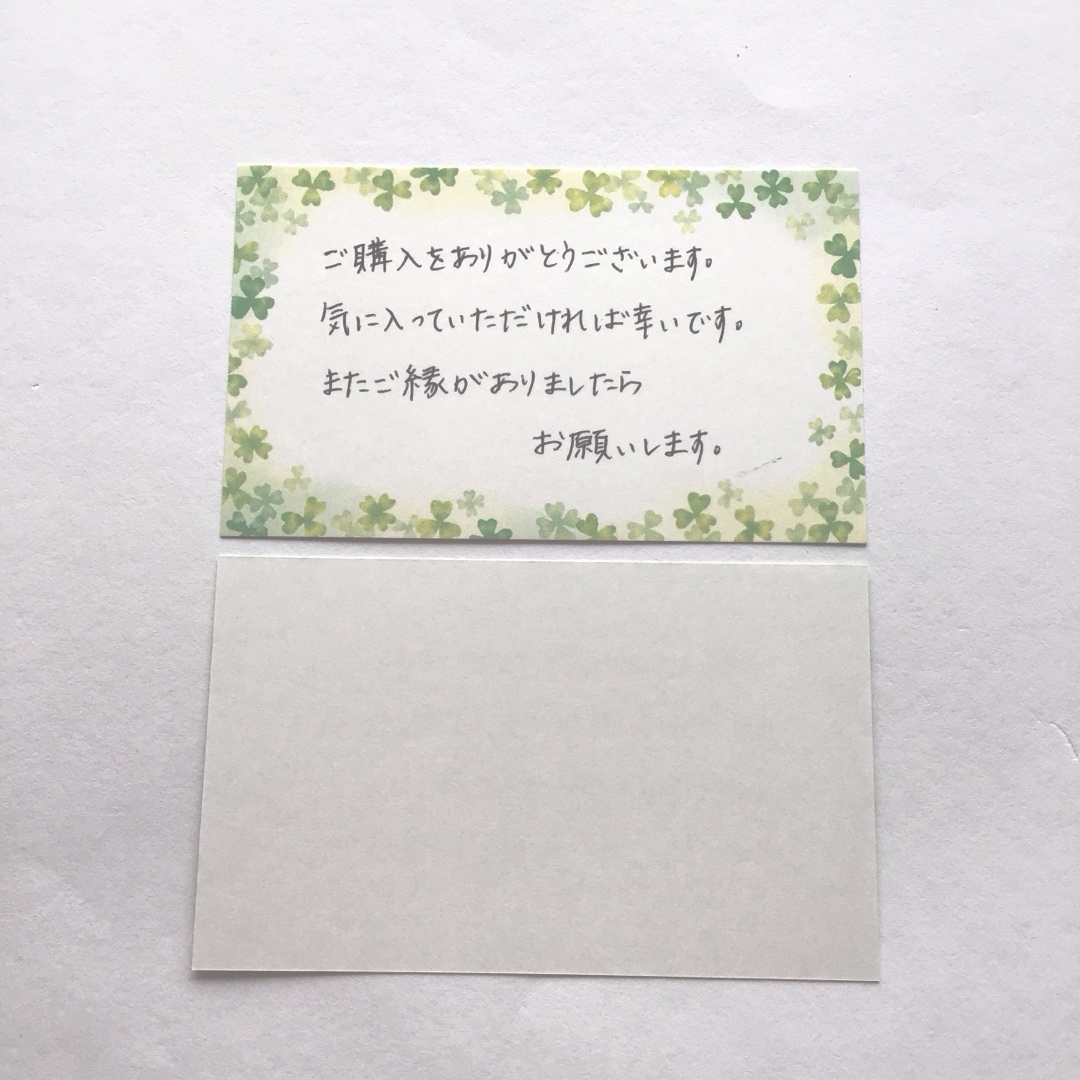 ご購入をありがとうございます。
気に入っていただければ幸いです。
またご縁がありましたら
お願いします。